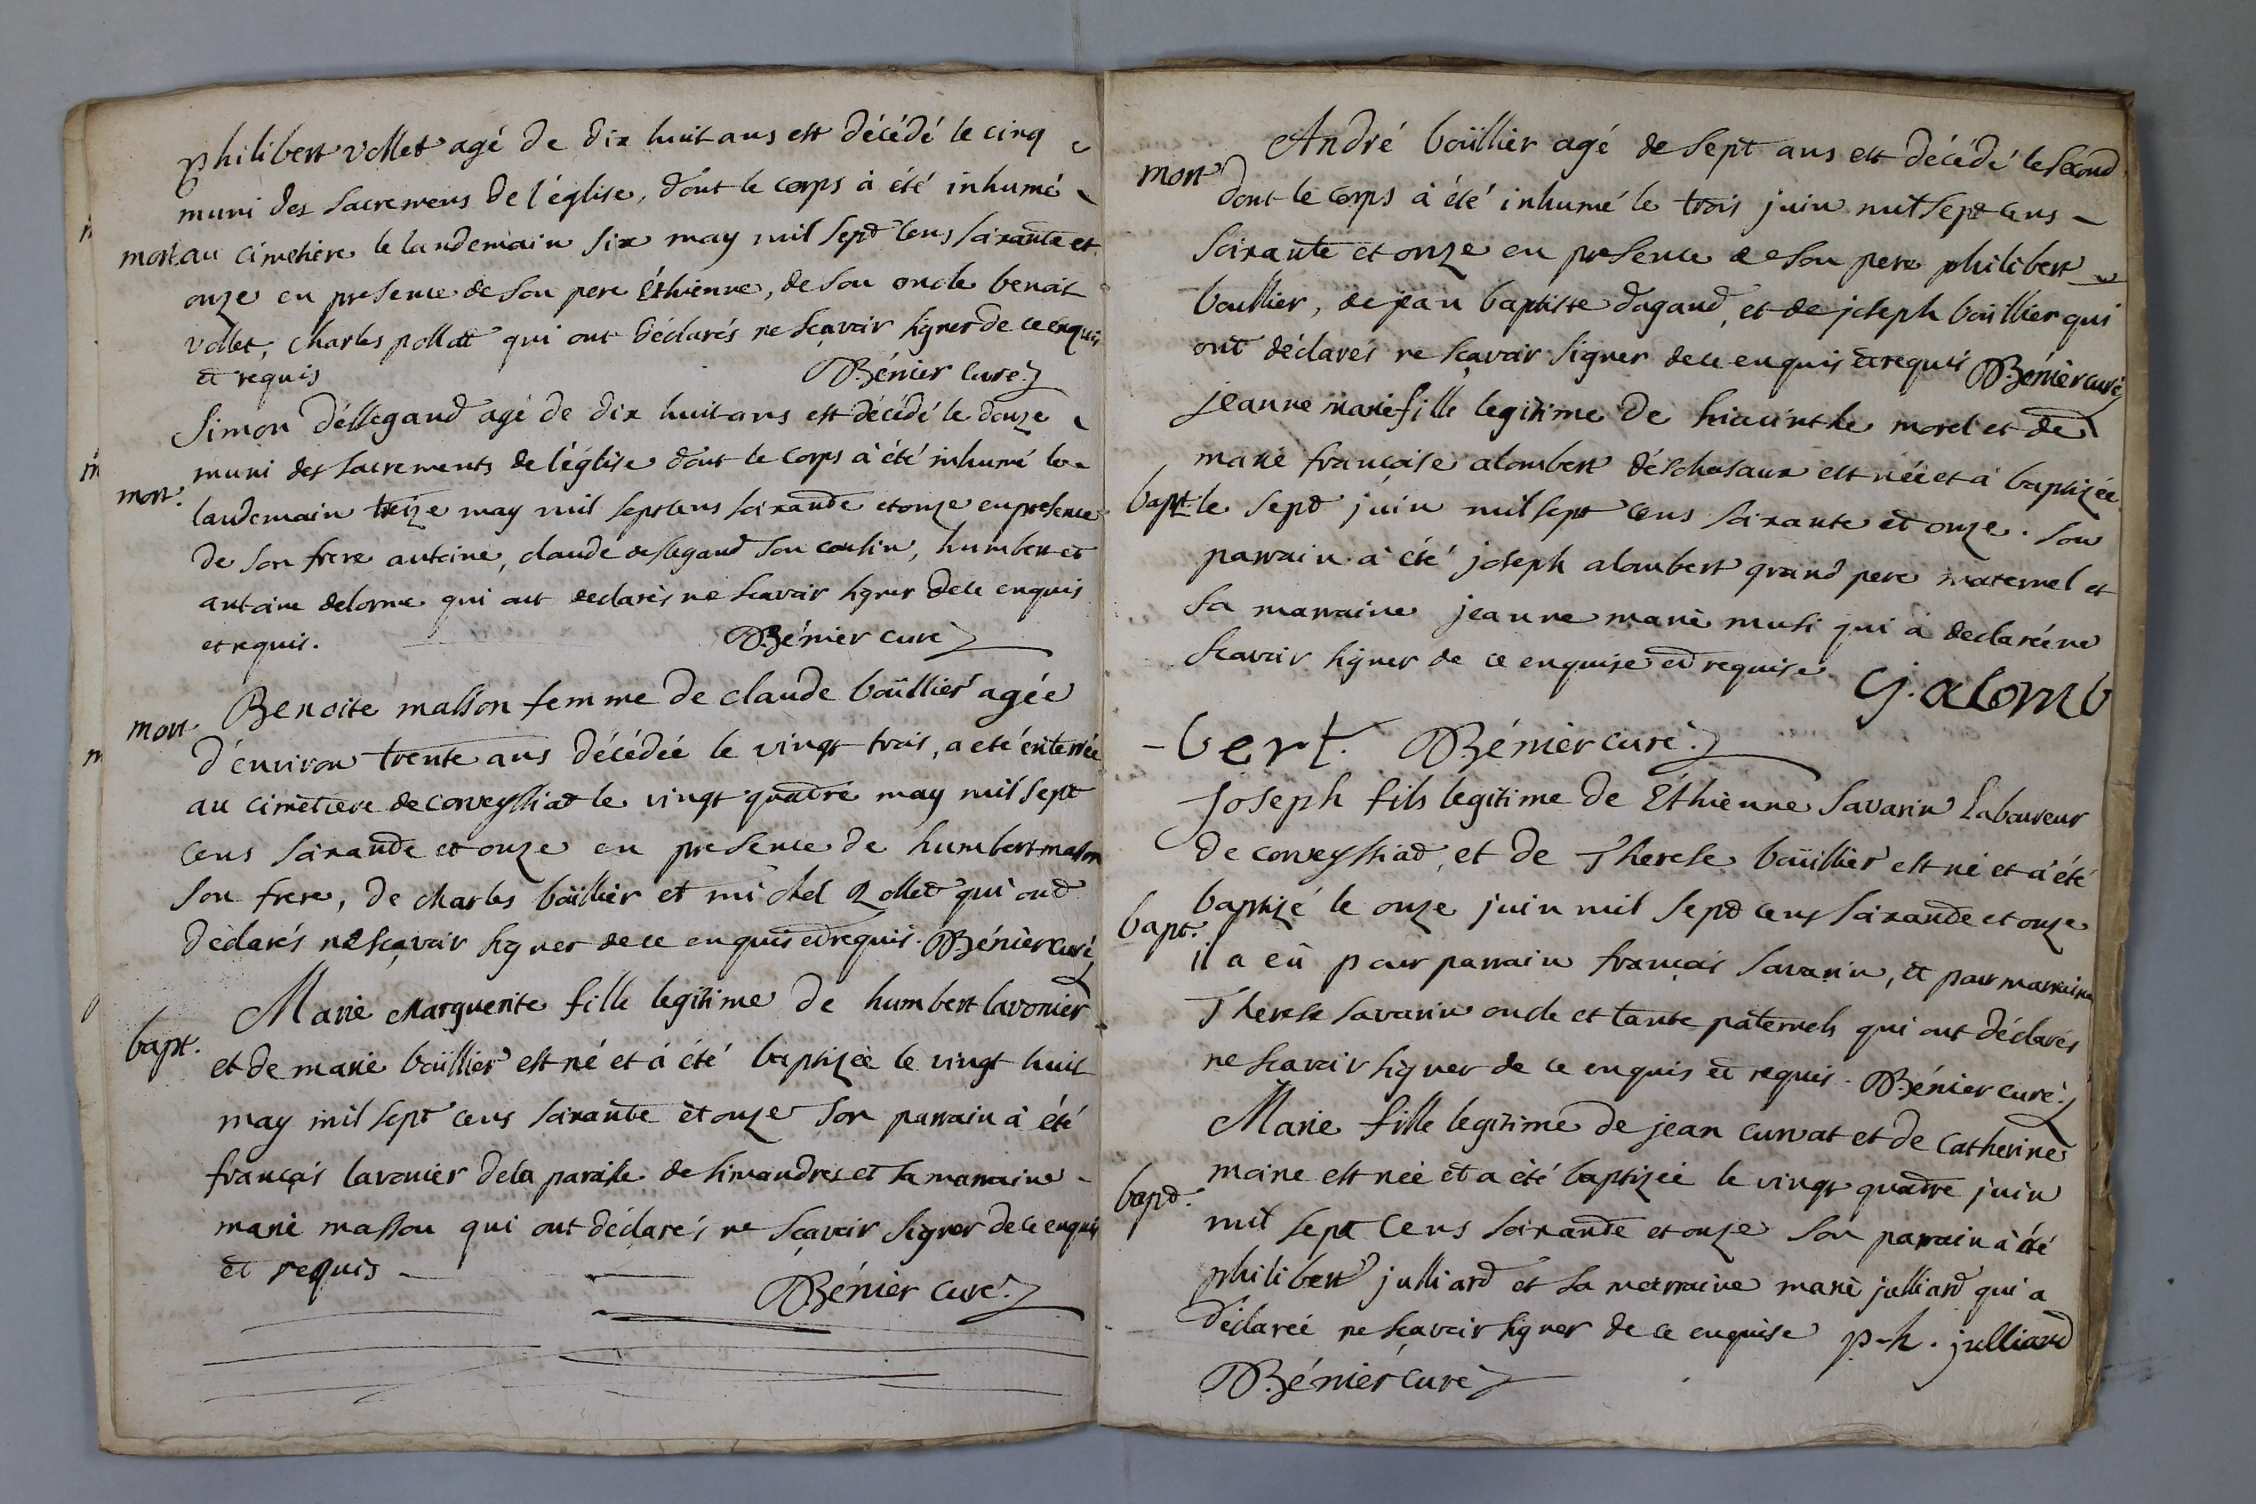 philibert vollet agé de dix huit ans est décédé le cinq
muni des sacremens de l'église, dont le corps à été inhumé
mort. au cimetière le landemain six may mil sept cens soixante et
onze en presence de son pere Éthienne, de son oncle benoit
vollet, charles pollatt qui ont déclarés ne sçavoir signer de ce enquis
et requis Bénier curé
Simon déllegand agé de dix huit ans est décédé le douze
muni des sacrements de l'église dont le corps à été inhumé le
mort. landemain treize may mil sept cens soixante et onze en presence
de son frere antoine, claude dellegand son cousin, humbert et
antoine delorme qui ont declarés ne scavoir signer de ce enquis
et requis. Bénier curé
mort Benoite masson femme de claude boüillier agée
d'environ trente ans décédée le vingt trois, a eté enterrée
au cimetiere de corveyssiat le vingt quatre may mil sept
cens soixante et onze en presence de humbert masson
son frere, de charles boüillier et michel vollet qui ont
déclarés ne sçavoir signer de ce enquis et requis. Bénier curé
Marie Marguerite fille legitime de humbert lavonier
bapt. et de marie boüillier est né et à été baptizée le vingt huit
may mil sept cens soixante et onze son parrain à été
françois lavonier de la paroisse de simandres et sa marraine
marie masson qui ont déclarés ne sçavoir signer de ce enquis
et requis
Bénier curé
André boüillier agé de sept ans est décédé le second
mort dont le corps à été inhumé le trois juin mil sept cens
soixante et onze en presence de son pere philibert
boullier, de jean baptiste dagand, et de joseph boüillier qui
ont déclarés ne sçavoir signer de ce enquis et requis Bénier curé
jeanne marie fille legitime de hiacinthe morel et de
marie françoise alombert déschasaux est née et à baptizée
bapt. le sept juin mil sept cens soixante et onze. son
parrain à été joseph alombert grand pere maternel et
sa marraine jeanne marie musi qui à declarée ne
scavoir signer de ce enquise et requise.
G. alomb
-bert. Bénier curé
Joseph fils legitime de Éthienne savarin Laboureur
de corveyssiat, et de Therese boüillier est né et à été
bapt. baptizé le onze juin mil sept cens soixante et onze
il a eü pour parrain françois savarin, et pour marraine
Therese savarin oncle et tante paternels qui ont déclarés
ne scavoir signer de ce enquis et requis. Bénier curé
Marie fille legitime de jean curvat et de catherine
moine est née et a été baptizée le vingt quatre juin
bapt. mil sept cens soixante et onze son parrain à été
philibert julliard et sa marraine marie julliard qui a
déclarée ne sçavoir signer de ce enquise p-h. julliard
Bénier curé